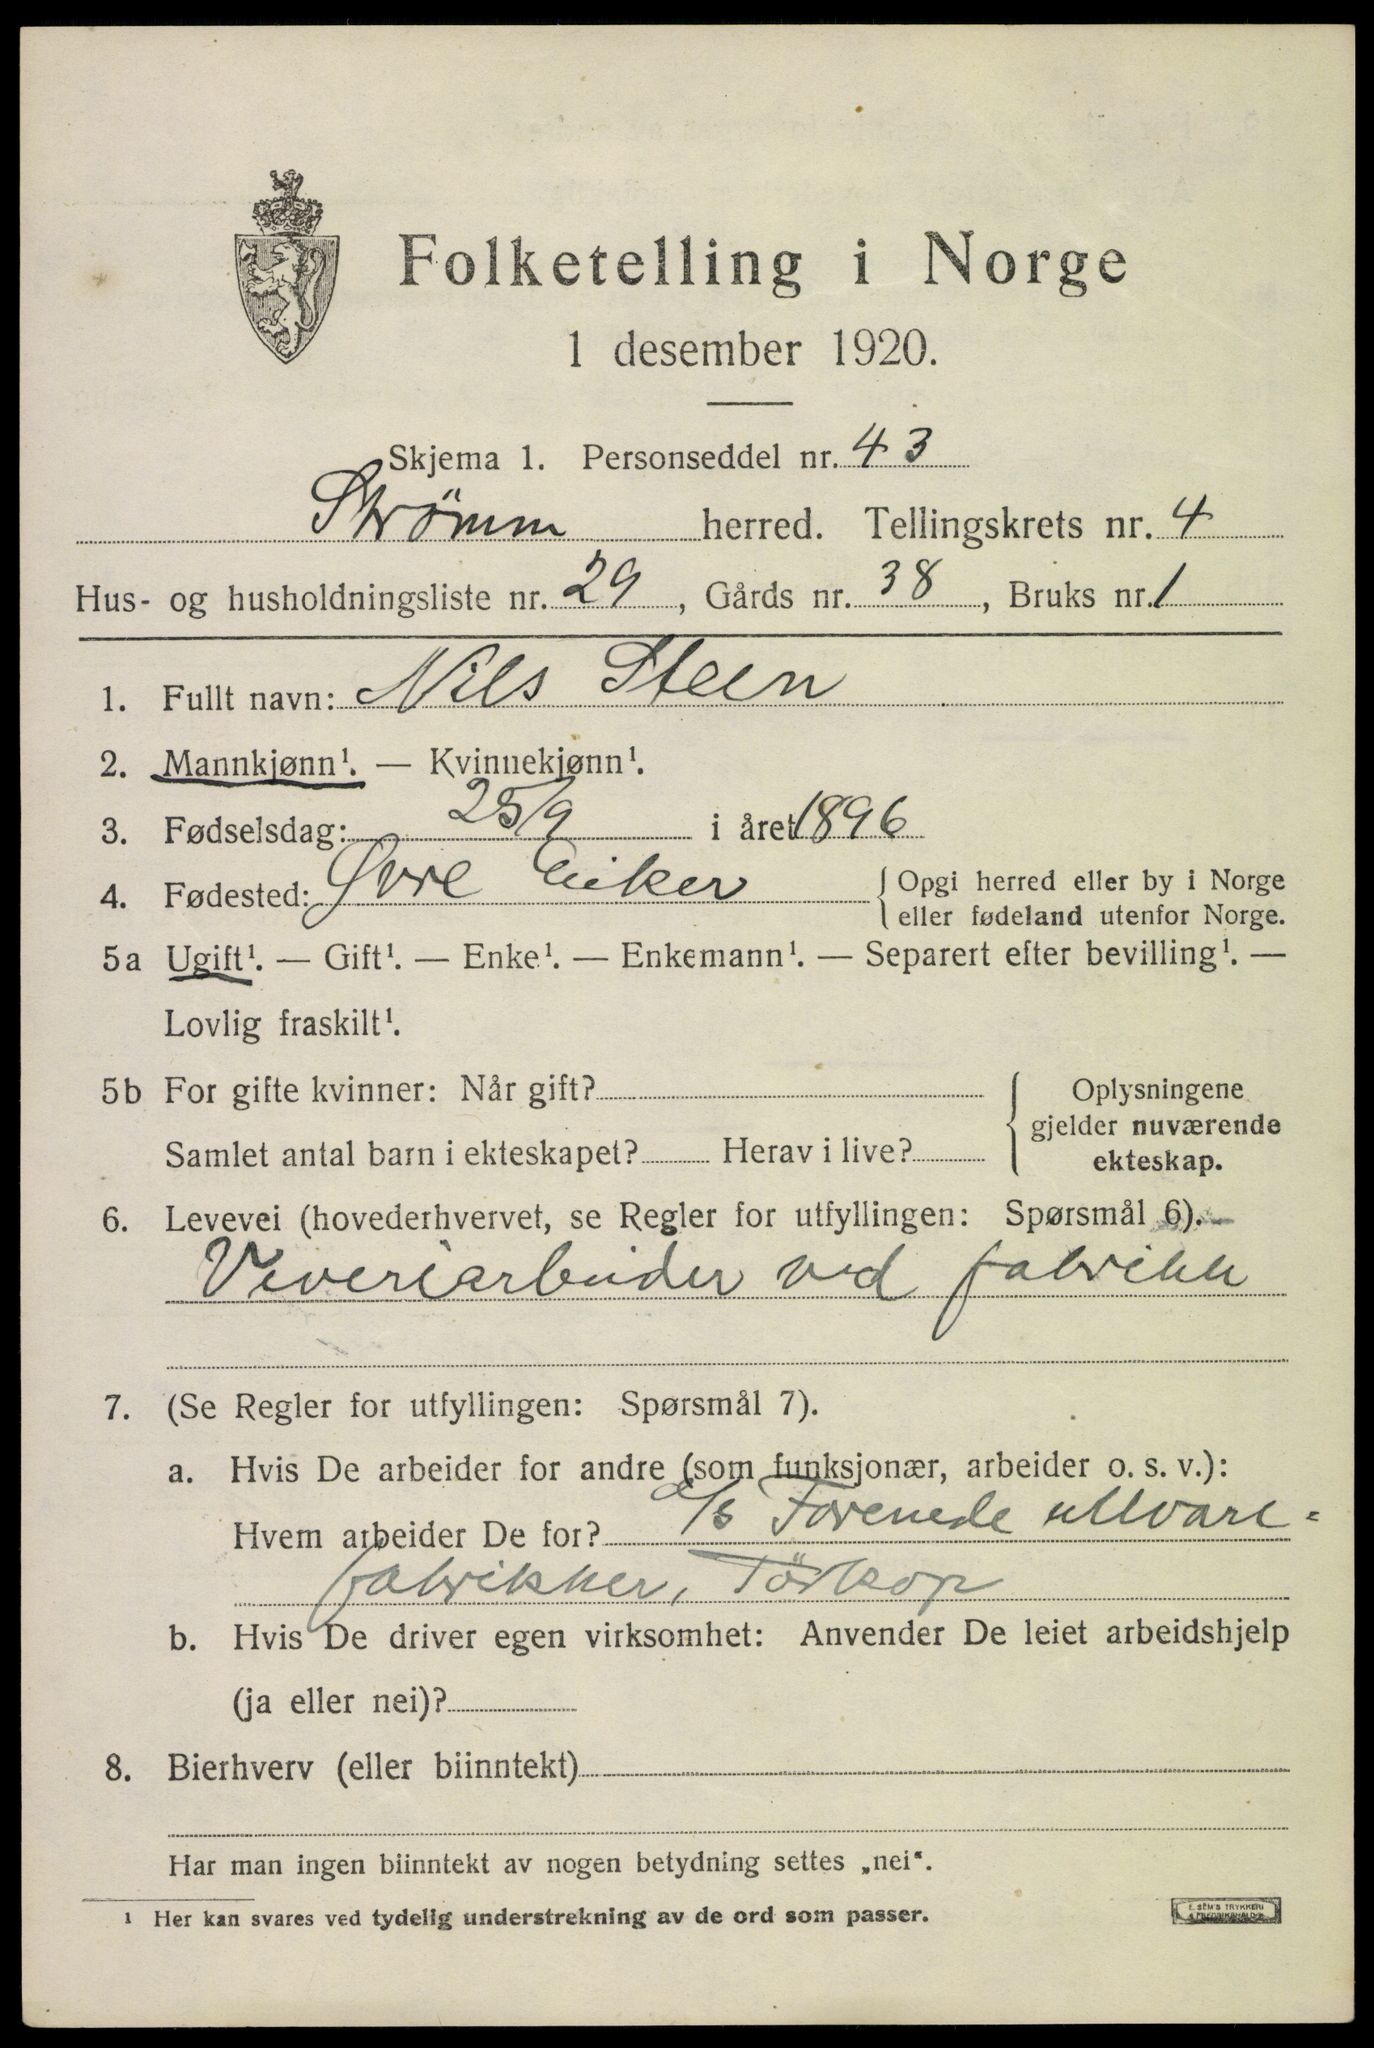 Folketelling i Norge
1 desember 1920.
Skjema 1. Personseddel nr. 43
Strømm herred. Tellingskrets nr. 4
Hus- og husholdningsliste nr. 29, Gårds nr. 38, Bruks nr. 1
1. Fullt navn: Nils Steen
2. Mannkjønn¹. — Kvinnekjønn¹.
3. Fødselsdag: 25/9 i året 1896
4. Fødested: Øvre Eiker { Opgi herred eller by i Norge
eller fødeland utenfor Norge.
5a Ugift¹. — Gift¹. — Enke¹. — Enkemann¹. — Separert efter bevilling¹. —
Lovlig fraskilt¹.
5b For gifte kvinner: Når gift? { Oplysningene
gjelder nuværende
Samlet antal barn i ekteskapet? Herav i live? ekteskap.
6. Levevei (hovederhvervet, se Regler for utfyllingen: Spørsmål 6).
Veveriarbeider ved fabrikk
7. (Se Regler for utfyllingen: Spørsmål 7).
a. Hvis De arbeider for andre (som funksjonær, arbeider o. s. v.):
Hvem arbeider De for? a/s Forenede ullvare-
fabrikker, Törkop
b. Hvis De driver egen virksomhet: Anvender De leiet arbeidshjelp
(ja eller nei)?
8. Bierhverv (eller biinntekt)
Har man ingen biinntekt av nogen betydning settes „nei“.
¹ Her kan svares ved tydelig understrekning av de ord som passer.
E. SEM'S TRYKKERI
FREDRIKSHALD